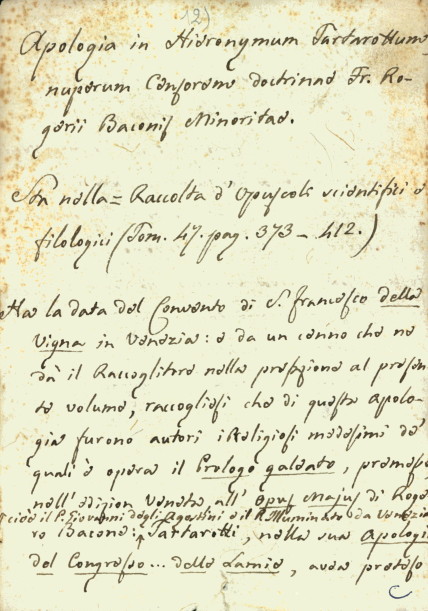 12)
Apologia in Hieronymum Tartarottum
nuperum Censorem doctrinae Fr. Ro-
gerii Baconis Minoritae.
Sta nella = Raccolta d'Opuscoli scientifici e
filologici (Tom. 47. pag. 373 - 412.)
Ha la data del Convento di S. Francesco della
Vigna in Venezia: e da un cenno che ne
dà il Raccoglitore nella prefazione al presen-
te volume, raccogliesi che di questa Apolo-
gia furono autori i Religiosi medesimi de'
quali è opera il Prologo galeato, premesso
nell'edizion Veneta all' Opus Majus di Roge
cioè il P. Giovanni degli Agostini e il P. Illuminato da Venezia
ro Bacone: Tartarotti, nella sua Apologia
del Congresso... delle Lamie, avea preteso